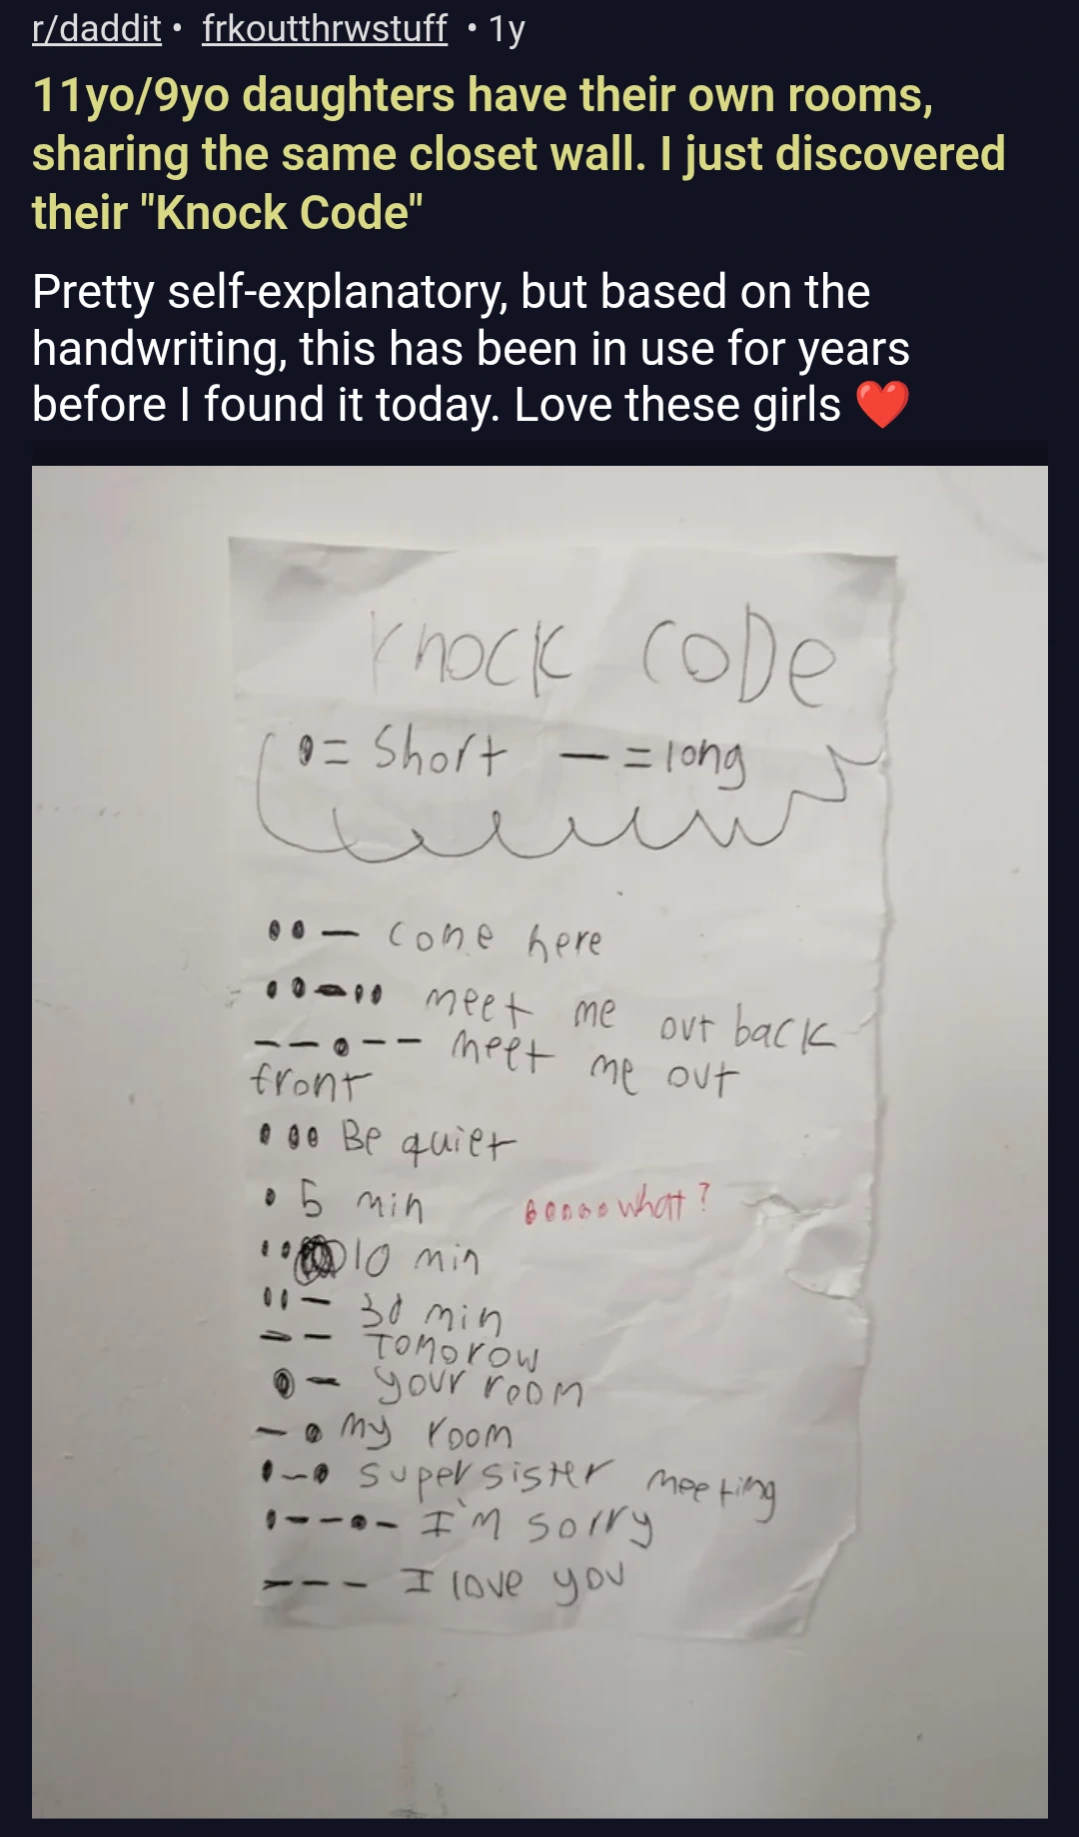 r/daddit • frkoutthrwstuff • 1y
11yo/9yo daughters have their own rooms,
sharing the same closet wall. I just discovered
their "Knock Code"
Pretty self-explanatory, but based on the
handwriting, this has been in use for years
before I found it today. Love these girls ❤️
Knock CoDe
•= Short — =long
•• — come here
••—•• meet me out back
— — • — — meet me out
front
• • • Be quiet
• 5 min
••••• what?
•• 10 min
•• — 30 min
— — Tomorow
• — your room
— • my room
•—• super sister meeting
•— —•— I'm sorry
— — — I love you